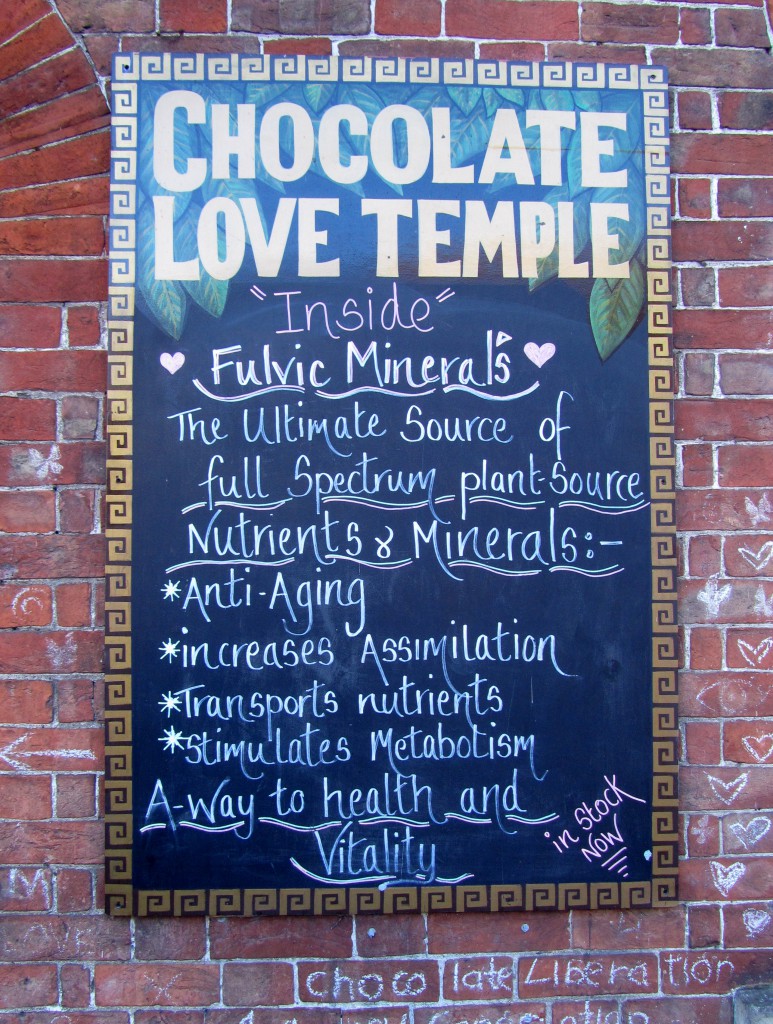 CHOCOLATE
LOVE TEMPLE
"Inside"
Fulvic Minerals
The Ultimate Source of
full Spectrum plant-Source
Nutrients & Minerals:-
*Anti-Aging
*increases Assimilation
*Transports nutrients
*Stimulates Metabolism
A-way to health and
Vitality
in Stock
NOW
chocolate Liberation